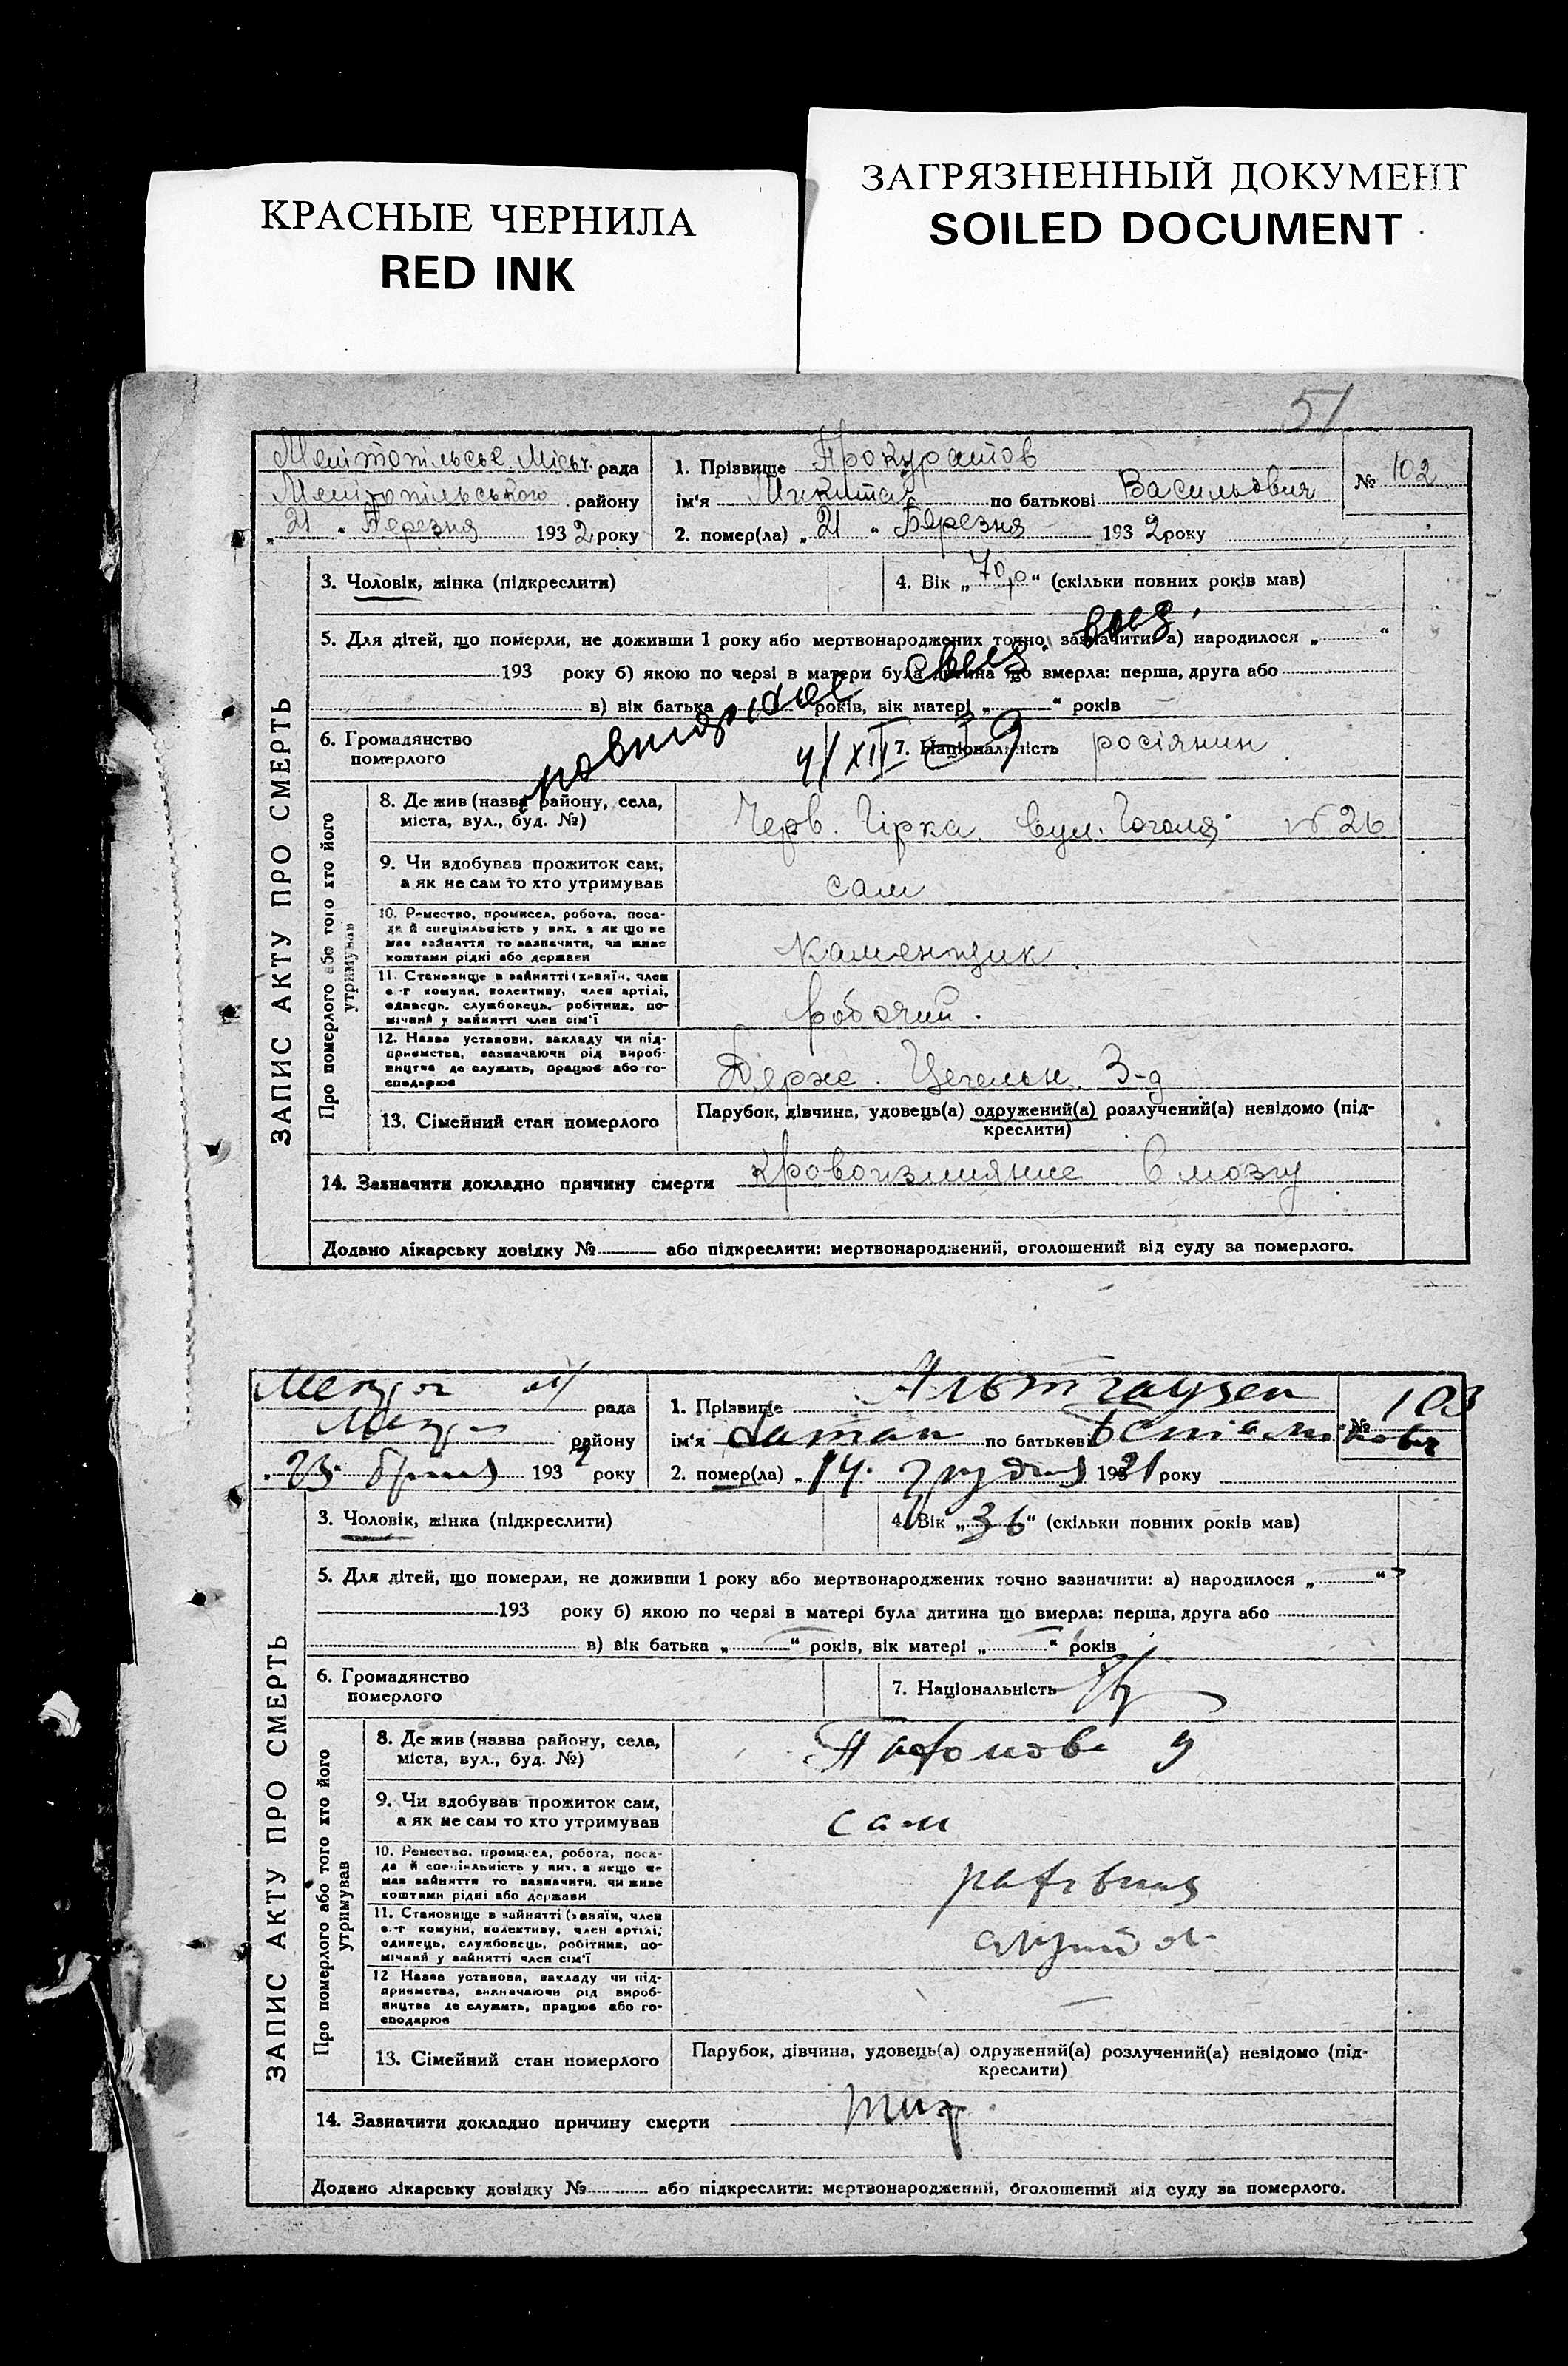 КРАСНЫЕ ЧЕРНИЛА
RED INK
ЗАГРЯЗНЕННЫЙ ДОКУМЕНТ
SOILED DOCUMENT
51
Мелітопільське Міськ. рада
Мелітопільського району
„21“ Березня 1932 року
1. Прізвище
ім'я Микита по батькові Васильович
2. помер(ла) „21“ Березня 1932 року
№ 102
ЗАПИС АКТУ ПРО СМЕРТЬ
3. Чоловік, жінка (підкреслити)
4. Вік „70 р“ (скільки повних років мав)
5. Для дітей, що померли, не доживши 1 року або мертвонароджених точно зазначити: а) народилося „ “
193 року б) якою по черзі в матери була дитина що вмерла: перша, друга або
в) вік батька років, вік матері „ “ років
6. Громадянство
померлого
7. Національність росіянин
Про померлого або того хто його
утримував
8. Де жив (назва району, села,
міста, вул., буд. №)
Черв. Гірка. вул. Гоголя № 26
9. Чи вдобував прожиток сам,
а як не сам то хто утримував
сам
10. Ремество, промисел, робота, поса-
да й спеціяльність у них, а як що не
має зайняття то зазначити, чи живе
коштами рідні або держави
Каменщик
11. Становище в зайнятті (хазяїн, член
с.-г комуни, колективу, член артілі,
одинець, службовець, робітник, по-
мічний у зайнятті член сім'ї
робочий.
12. Назва установи, закладу чи під-
приємства, зазначаючи рід вироб-
ництва де служить, працює або го-
сподарює
Держ. Цегельн. З-д
13. Сімейний стан померлого
Парубок, дівчина, удовець(а) одружений(а) розлучений(а) невідомо (під-
креслити)
14. Зазначити докладно причину смерти Кровоизлияние в мозгу
Додано лікарську довідку № або підкреслити: мертвонароджений, оголошений від суду за померлого.
рада
району
193 року
1. Прізвище Альтгаузен
ім'я Натан по батькові
2. помер(ла) „14. грудня 1931 року
№ 103
ЗАПИС АКТУ ПРО СМЕРТЬ
3. Чоловік, жінка (підкреслити)
4. Вік „36“ (скільки повних років мав)
5. Для дітей, що померли, не доживши 1 року або мертвонароджених точно зазначити: а) народилося „ “
193 року б) якою по черзі в матері була дитина що вмерла: перша, друга або
в) вік батька „ “ років, вік матері „ “ років
6. Громадянство
померлого
7. Національність
Про померлого або того хто його
утримував
8. Де жив (назва району, села,
міста, вул., буд. №)
9. Чи вдобував прожиток сам,
а як не сам то хто утримував
сам
10. Ремество, промисел, робота, поса-
да й спеціяльність у них, а якщо не
має зайняття то зазначити, чи живе
коштами рідні або держави
11. Становище в зайнятті (хазяїн, член
с.-г комуни, колективу, член артілі,
одинець, службовець, робітник, по-
мічний у зайнятті член сім'ї
12 Назва установи, закладу чи під-
приємства, зазначаючи рід вироб-
ництва де служить, працює або го-
сподарює
13. Сімейний стан померлого
Парубок, дівчина, удовець(а) одружений(а) розлучений(а) невідомо (під-
креслити)
14. Зазначити докладно причину смерти тиф
Додано лікарську довідку № або підкреслити: мертвонароджений, оголошений від суду за померлого.